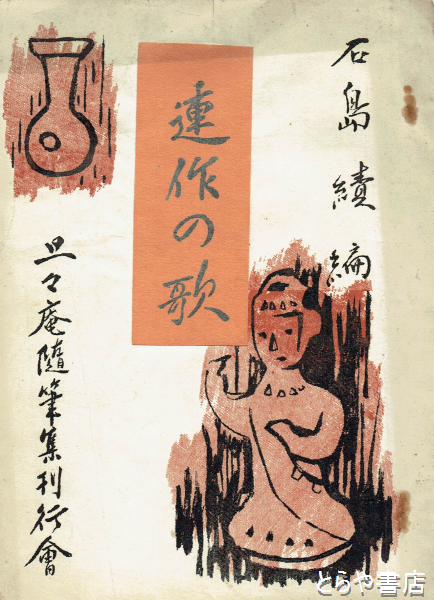 石島績編
連作の歌
旦々庵隨筆集刊行會
とらや書店